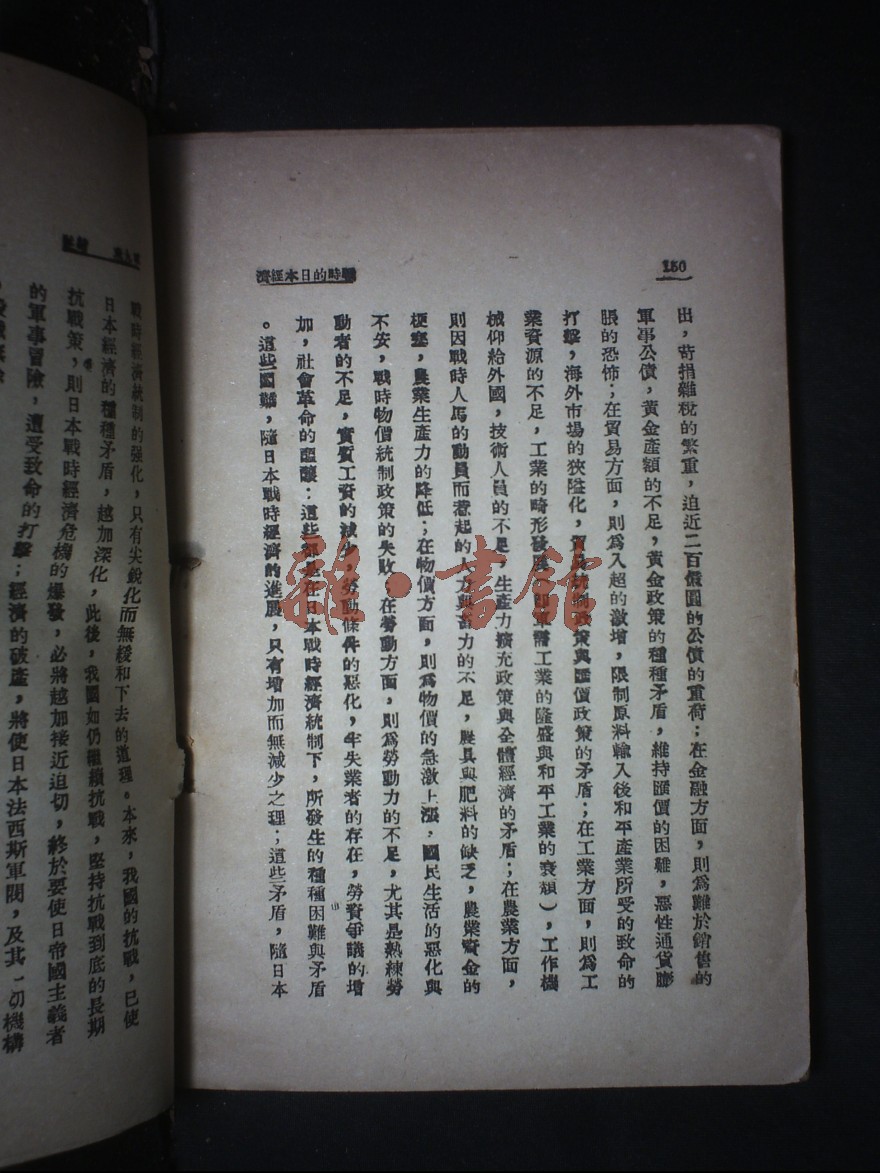 150
戰時的日本經濟
出，苛捐雜稅的繁重，迫近二百億圓的公債的重荷；在金融方面，則爲難於銷售的
軍事公債，黃金產額的不足，黃金政策的種種矛盾，維持匯價的困難，惡性通貨膨
脹的恐怖；在貿易方面，則爲入超的激增，限制原料輸入後和平產業所受的致命的
打擊，海外市場的狹隘化，貿易統制政策與匯價政策的矛盾；在工業方面，則爲工
業資源的不足，工業的畸形發展（即軍需工業的隆盛與和平工業的衰頹），工作機
械仰給外國，技術人員的不足，生產力擴充政策與全體經濟的矛盾；在農業方面，
則因戰時人馬的動員而惹起的人力與畜力的不足，農具與肥料的缺乏，農業資金的
梗塞，農業生產力的降低；在物價方面，則爲物價的急激上漲，國民生活的惡化與
不安，戰時物價統制政策的失敗；在勞動方面，則爲勞動力的不足，尤其是熟練勞
動者的不足，實質工資的減少，勞動條件的惡化，半失業者的存在，勞資爭議的增
加，社會革命的醞釀：這些都是在日本戰時經濟統制下，所發生的種種困難與矛盾
。這些國難，隨日本戰時經濟的進展，只有增加而無減少之理；這些矛盾，隨日本
戰時經濟統制的强化，只有尖銳化而無緩和下去的道理。本來，我國的抗戰，已使
日本經濟的種種矛盾，越加深化，此後，我國如仍繼續抗戰，堅持抗戰到底的長期
抗戰策，則日本戰時經濟危機的爆發，必將越加接近迫切，終於要使日帝國主義者
的軍事冒險，遭受致命的打擊；經濟的破產，將使日本法西斯軍閥，及其一切機構
雜·書館